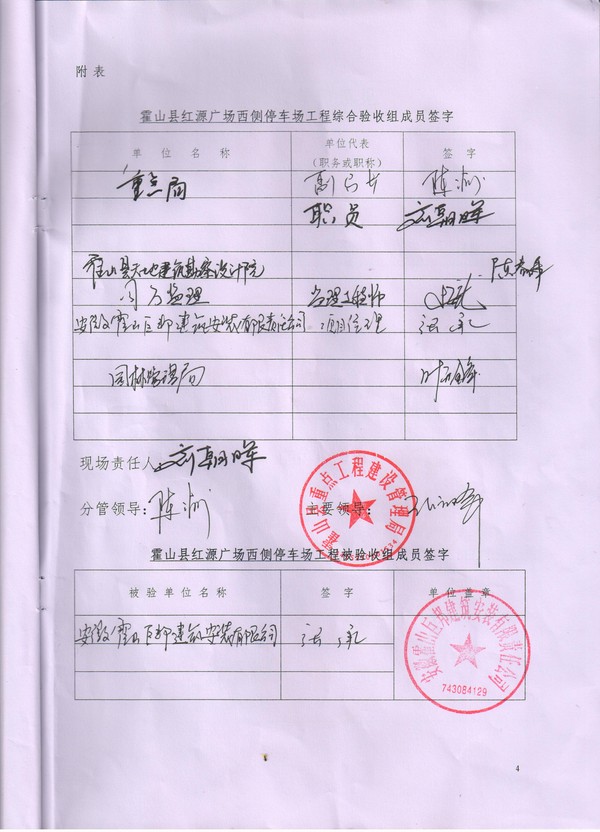 附表
霍山县红源广场西侧停车场工程综合验收组成员签字
单位名称 单位代表（职务或职称） 签字
重点局 陈洲
职员 刘朝晖
霍山县天地建筑勘察设计院
监理 监理工程师
安徽霍山巨邦建筑安装有限责任公司 项目经理
园林管理局
现场责任人 刘朝晖
分管领导： 陈洲 主要领导：
霍山县重点工程建设管理局
霍山县红源广场西侧停车场工程被验收组成员签字
被验单位名称 签字 单位盖章
安徽霍山巨邦建筑安装有限公司
安徽霍山巨邦建筑安装有限责任公司
743084129
4